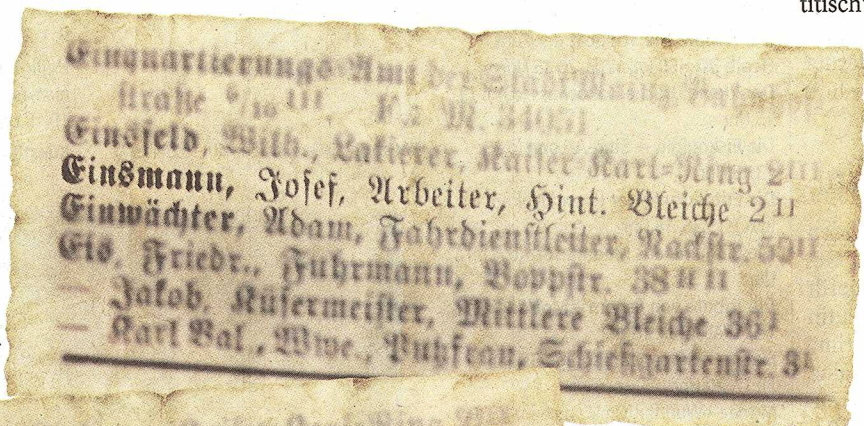 titisch
Einquartierungs-Amt der Stadt Mainz, Bahnhof-
straße 6/10 III. F.: M. 34051
Einsfeld, Wilh., Lakierer, Kaiser-Karl-Ring 2III
Einsmann, Josef, Arbeiter, Hint. Bleiche 2 II
Einwächter, Adam, Fahrdienstleiter, Nackstr.
Eis, Friedr., Fuhrmann, Boppstr. 38
— Jakob, Küfermeister, Mittlere Bleiche 36 I
— Karl Val., Wwe., Putzfrau, Schießgartenstr. 3 I